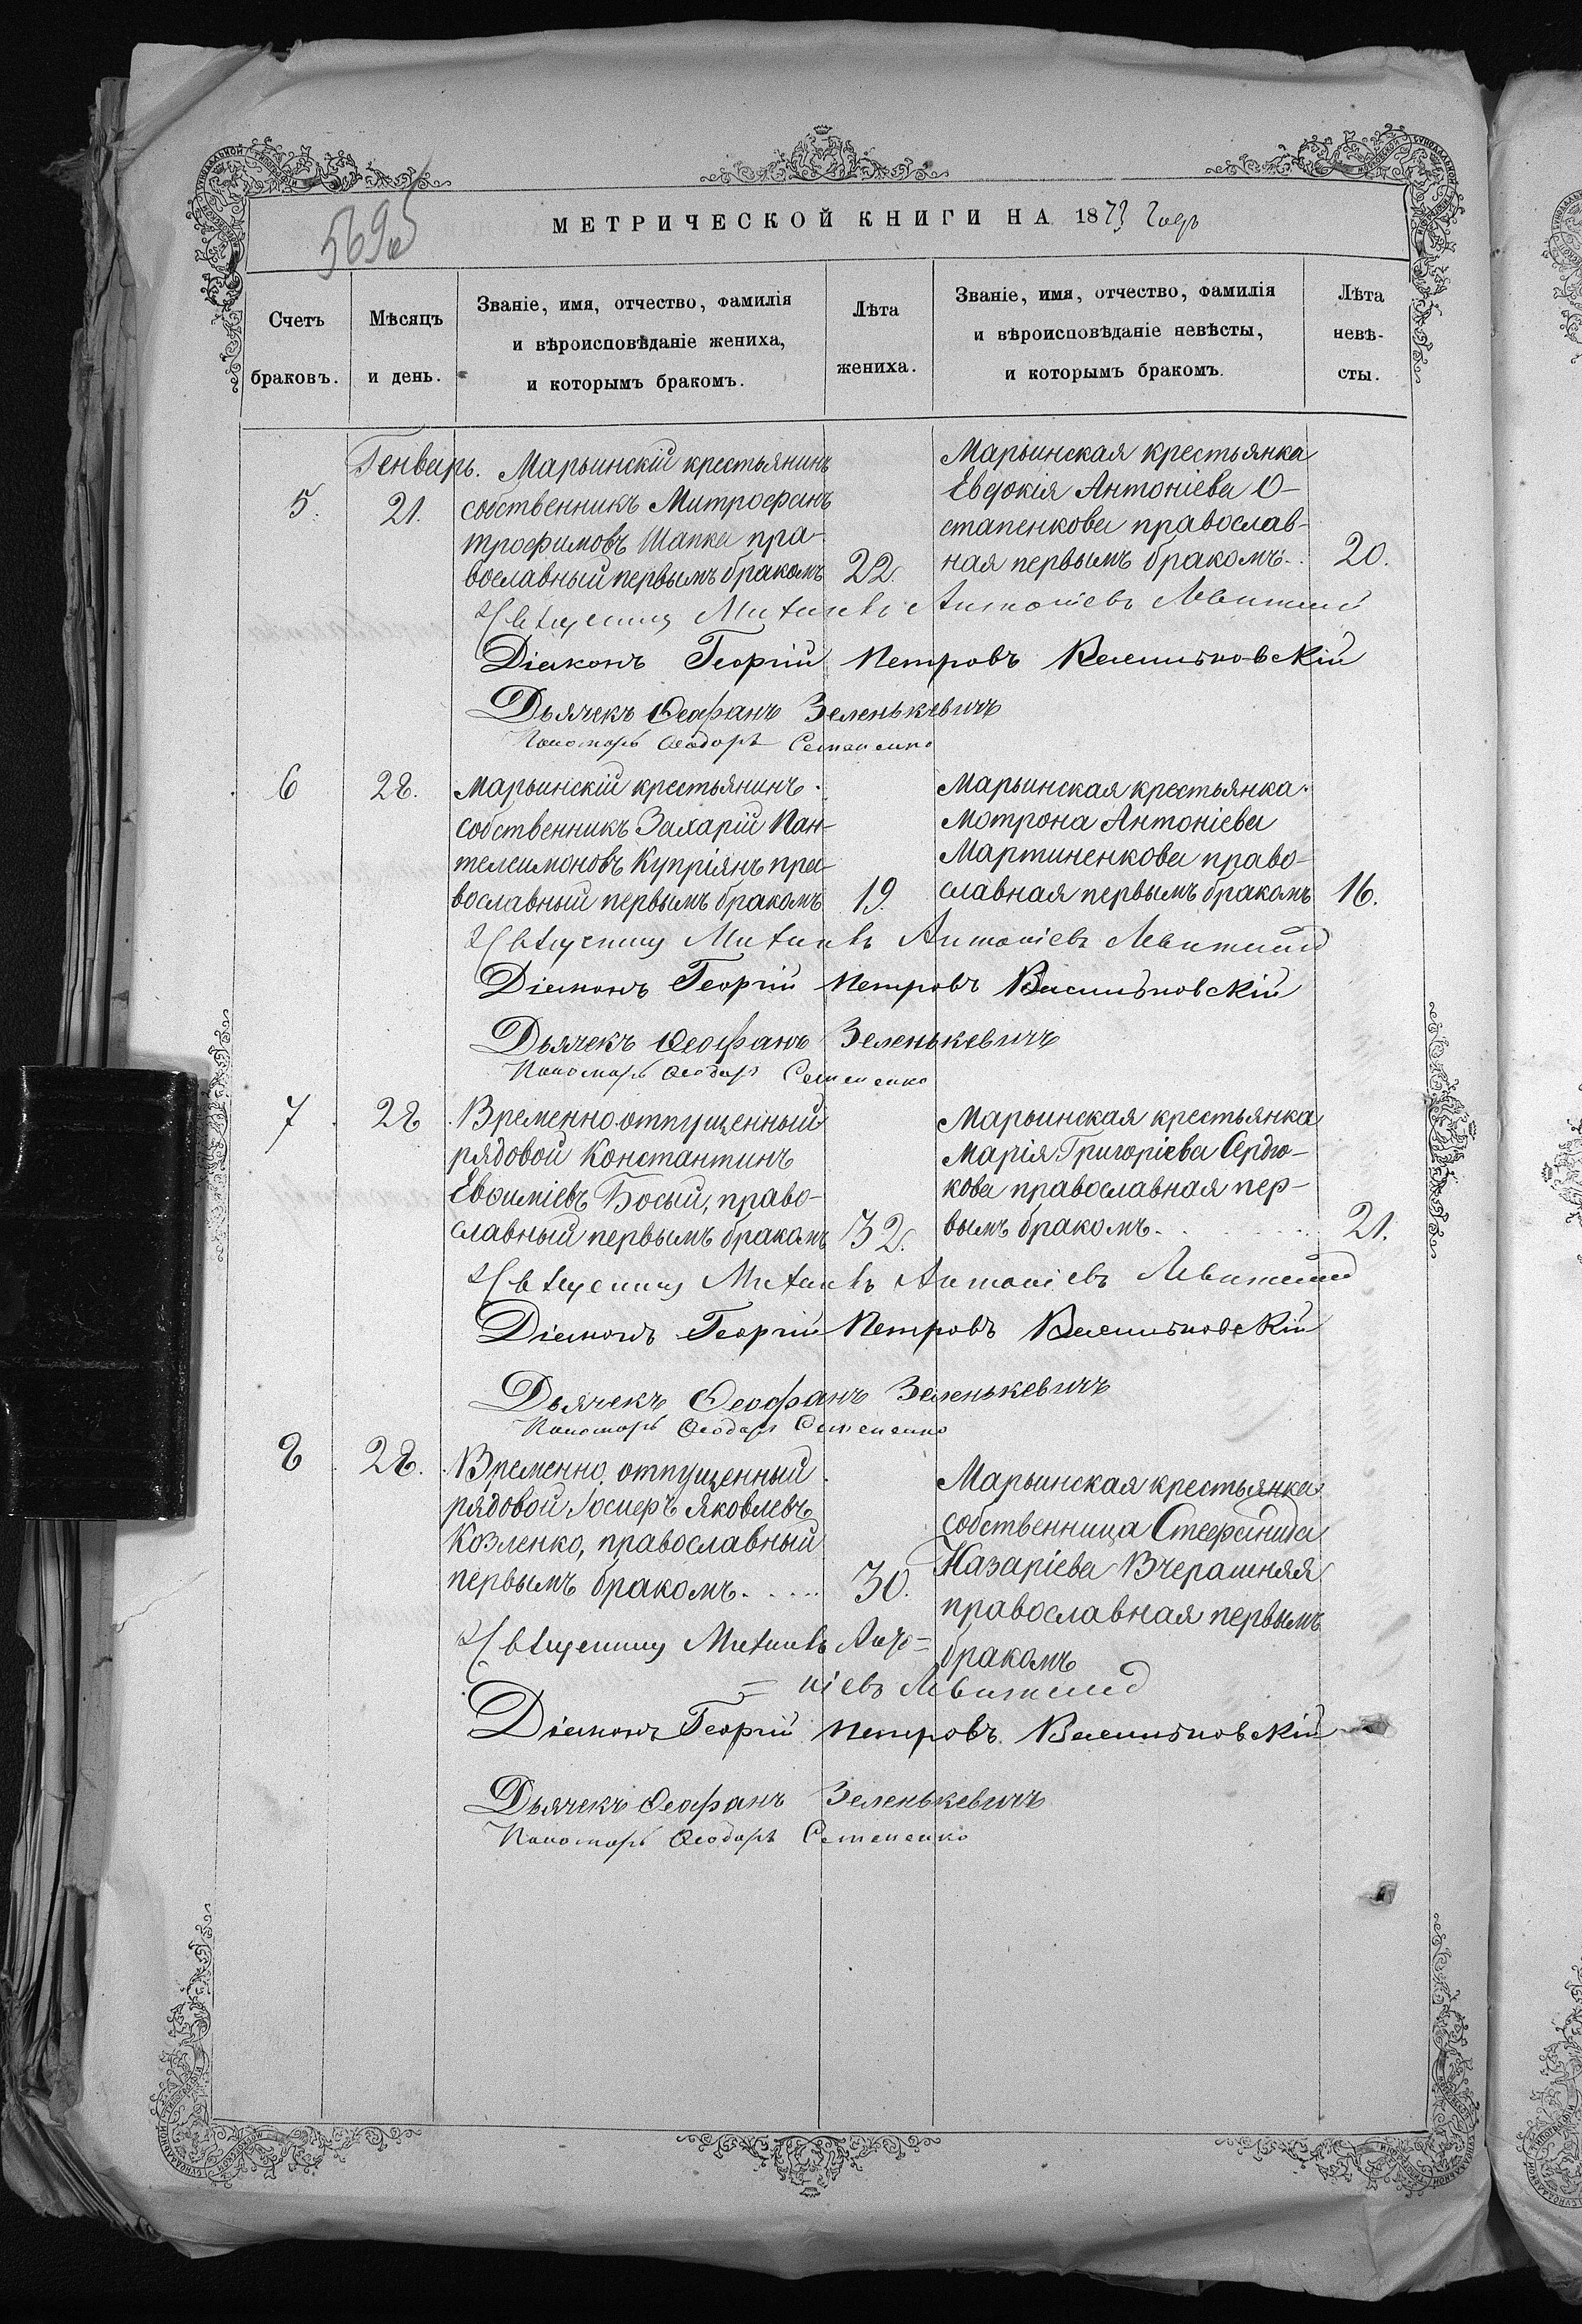 569об
МЕТРИЧЕСКОЙ КНИГИ НА 1873 Годъ
Счетъ браковъ.
Мѣсяцъ и день.
Званіе, имя, отчество, фамилія
и вѣроисповѣданіе жениха,
и которымъ бракомъ.
Лѣта жениха.
Званіе, имя, отчество, фамилія
и вѣроисповѣданіе невѣсты,
и которымъ бракомъ.
Лѣта невѣ-
сты.
Генварь.
5.
21.
Марьинскій крестьянинъ
собственникъ Митрофанъ
Трофимовъ Шапка пра-
вославный первымъ бракомъ
22.
Марьинская крестьянка
Евдокія Антоніева О-
стапенкова православ-
ная первымъ бракомъ.
20.
Священникъ Михаилъ Антоніевъ Левитскій
Діаконъ Георгій Петровъ Васильковскій
Дьячекъ Ѳеофанъ Зеленькевичъ
Пономарь Ѳеодоръ Семененко
6
28.
Марьинскій крестьянинъ
собственникъ Захарій Пан-
телеимоновъ Купріянъ пра-
вославный первымъ бракомъ
19.
Марьинская крестьянка
Мотрона Антоніева
Мартиненкова право-
славная первымъ бракомъ
16.
Священникъ Михаилъ Антоніевъ Левитскій
Діаконъ Георгій Петровъ Васильковскій
Дьячекъ Ѳеофанъ Зеленькевичъ
Пономарь Ѳеодоръ Семененко
7
28
Временно-отпущенный
рядовой Константинъ
Евѳиміевъ Босый, право-
славный первымъ бракомъ
32.
Марьинская крестьянка
Марія Григоріева Сердю-
кова православная пер-
вымъ бракомъ.
21.
Священникъ Михаилъ Антоніевъ Левитскій
Діаконъ Георгій Петровъ Васильковскій
Дьячекъ Ѳеофанъ Зеленькевичъ
Пономарь Ѳеодоръ Семененко
8
28.
Временно отпущенный
рядовой Іосифъ Яковлевъ
Козленко, православный
первымъ бракомъ.....
30.
Марьинская крестьянка
собственница Стефанида
Назаріева Вчерашняя
православная первымъ
бракомъ
Священникъ Михаилъ Анто=
=ніевъ Левитскій
Діаконъ Георгій Петровъ Васильковскій
Дьячекъ Ѳеофанъ Зеленькевичъ
Пономарь Ѳеодоръ Семененко